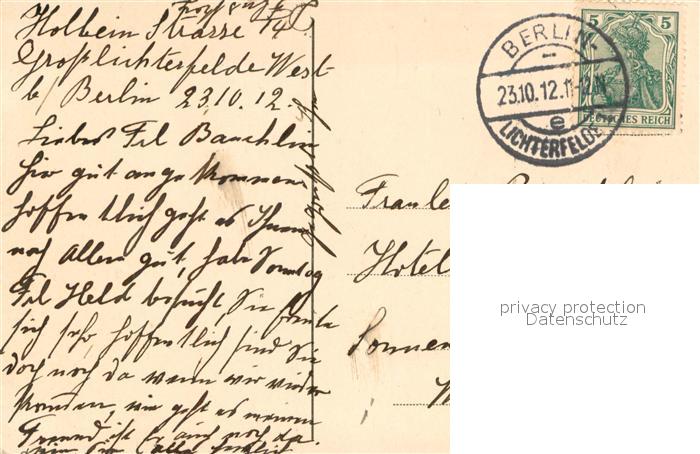 Holbein Strasse 14
Großlichterfelde West
b/ Berlin 23.10.12.
Liebes Frl
hier gut angekommen
hoffentlich geht es Ihnen
noch Allen gut, habe Sonntag
Frl Held besucht Sie freute
sich sehr hoffentlich sind Sie
doch noch da wenn wir wieder
kommen, wie geht es meinem
Freund ist Er auch noch da.
BERLIN-
23.10.12.11-
e
LICHTERFELDE
5 5
DEUTSCHES REICH
Hotel
Sonnen
privacy protection
Datenschutz